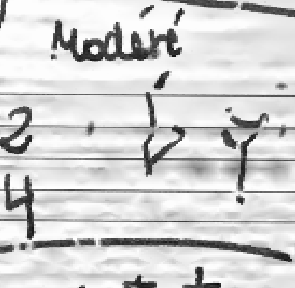 Modéré
2
4